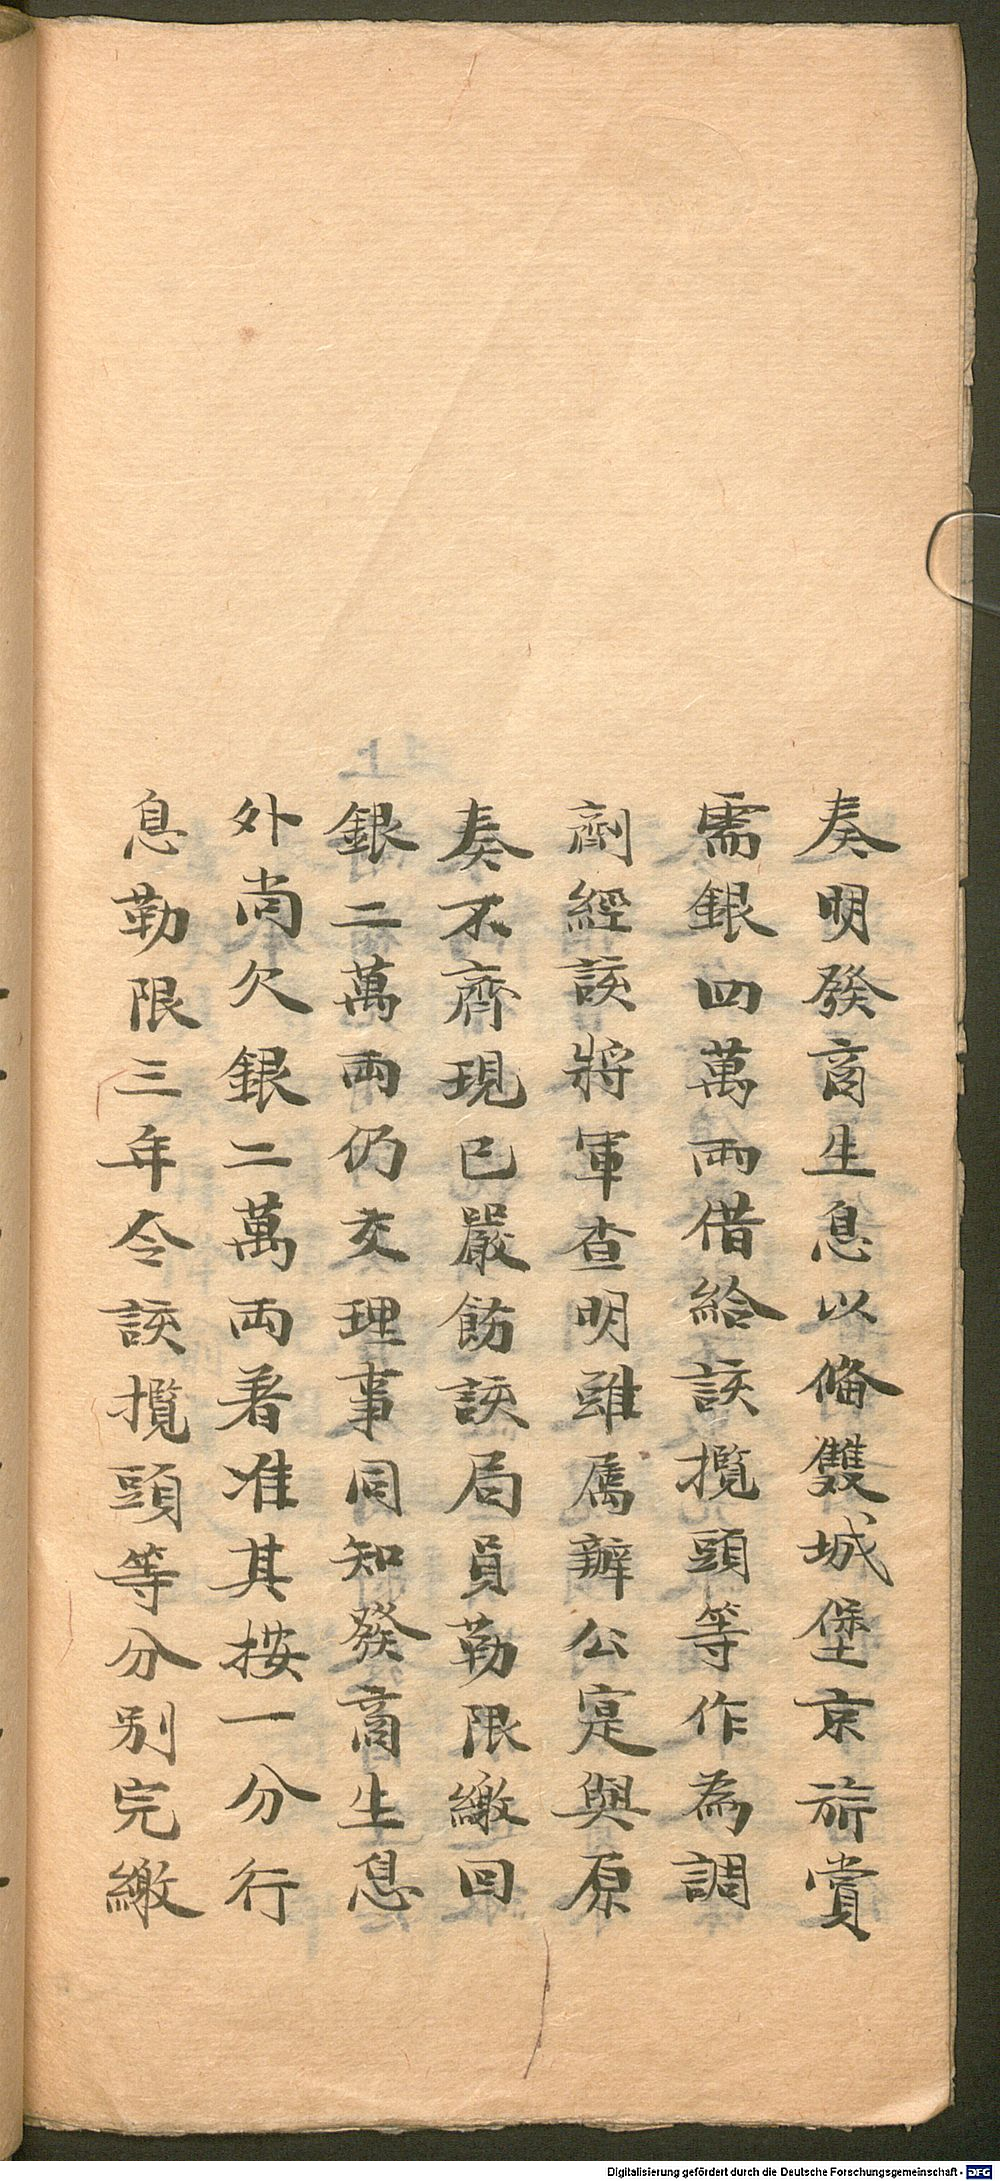 奏明發商生息以俻雙城堡京旂賞
需銀四萬兩借給該攬頭等作為調
劑經該將軍查明雖属辦公寔與原
奏不齊現已嚴飭該局員勒限繳回
銀二萬兩仍交理事同知發商生息
外尚欠銀二萬兩著准其按一分行
息勒限三年令該攬頭等分別完繳
Digitalisierung gefördert durch die Deutsche Forschungsgemeinschaft - DFG